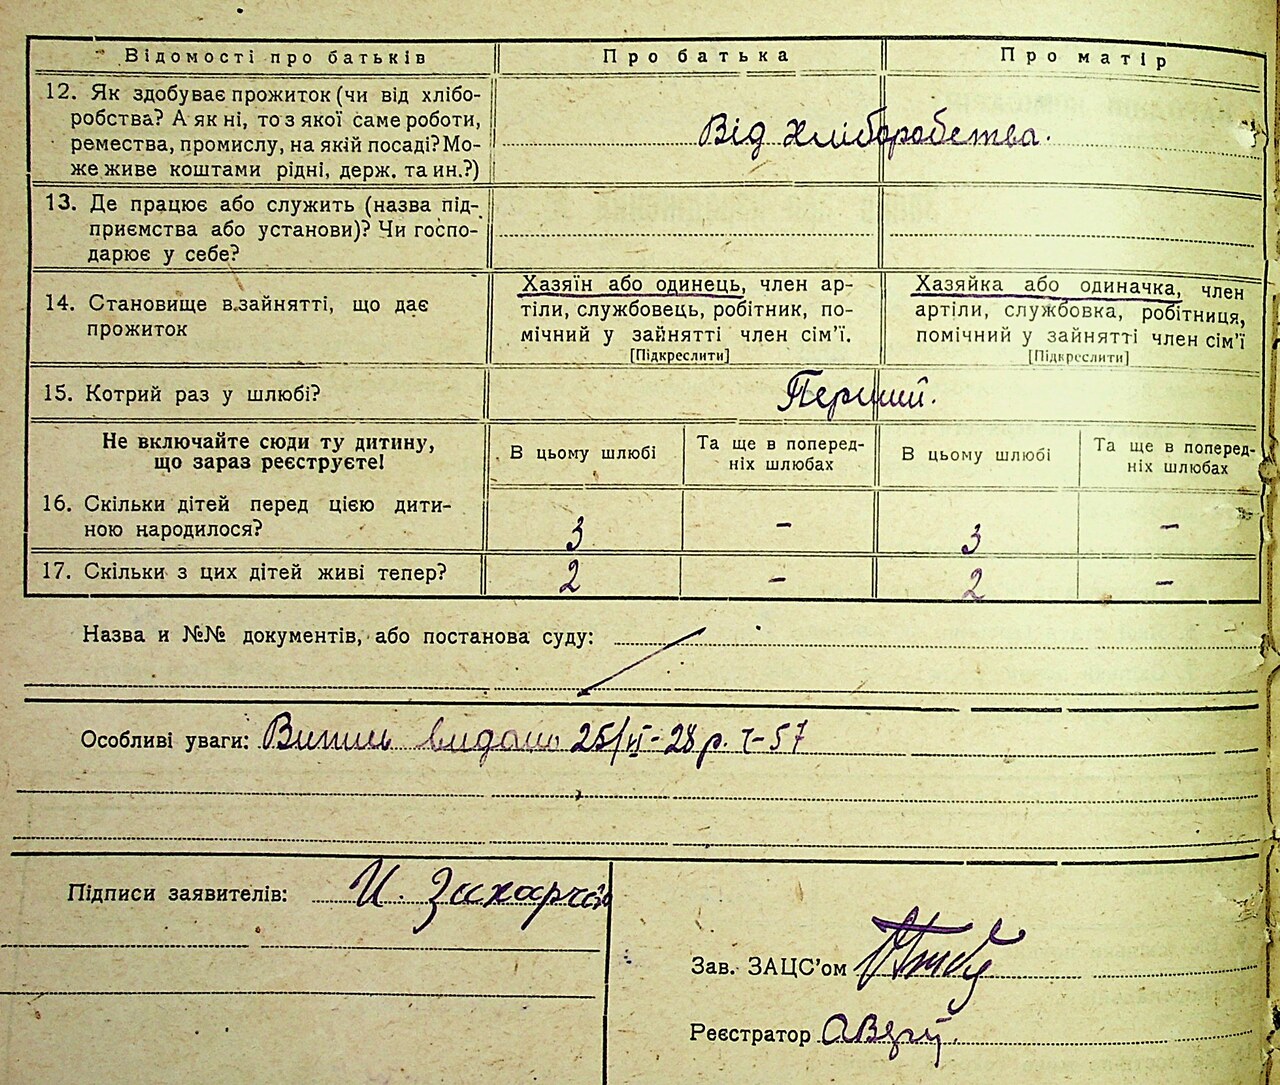 Відомості про батьків Про батька Про матір
12. Як здобуває прожиток (чи від хлібо-
робства? А як ні, то з якої саме роботи,
ремества, промислу, на якій посаді? Мо-
же живе коштами рідні, держ. та ин.?)
Від хліборобства.
13. Де працює або служить (назва під-
приємства або установи)? Чи госпо-
дарює у себе?
14. Становище в зайнятті, що дає
прожиток
Хазяїн або одинець, член ар-
тіли, службовець, робітник, по-
мічний у зайнятті член сім'ї.
[Підкреслити]
Хазяйка або одиначка, член
артіли, службовка, робітниця,
помічний у зайнятті член сім'ї
[Підкреслити]
15. Котрий раз у шлюбі? Перший.
Не включайте сюди ту дитину,
що зараз реєструєте!
В цьому шлюбі
Та ще в поперед-
ніх шлюбах
В цьому шлюбі
Та ще в поперед-
ніх шлюбах
16. Скільки дітей перед цією дити-
ною народилося?
3 - 3 -
17. Скільки з цих дітей живі тепер? 2 - 2 -
Назва и №№ документів, або постанова суду:
Особливі уваги: Випись видано 25/VI-28 р. 57
Підписи заявителів: И. Захарч
Зав. ЗАЦС'ом
Реєстратор